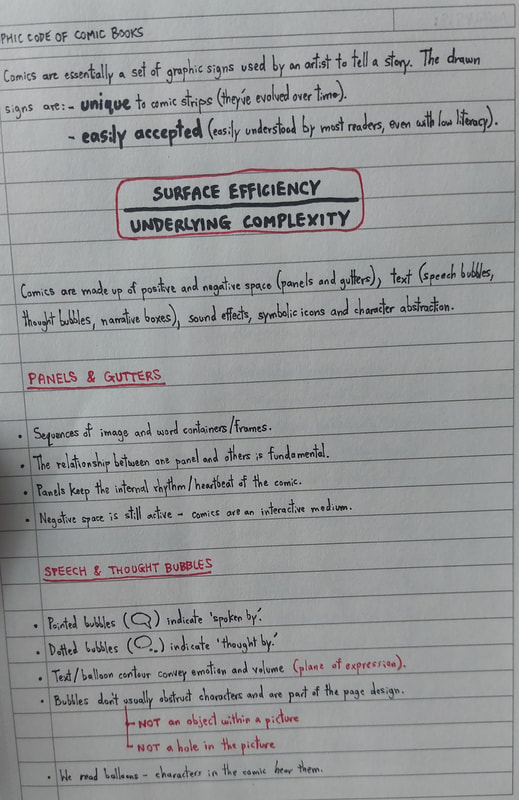 PHIC CODE OF COMIC BOOKS
Comics are essentially a set of graphic signs used by an artist to tell a story. The drawn
signs are:- unique to comic strips (they've evolved over time).
- easily accepted (easily understood by most readers, even with low literacy).
SURFACE EFFICIENCY
UNDERLYING COMPLEXITY
Comics are made up of positive and negative space (panels and gutters), text (speech bubbles,
thought bubbles, narrative boxes), sound effects, symbolic icons and character abstraction.
PANELS & GUTTERS
• Sequences of image and word containers/frames.
• The relationship between one panel and others is fundamental.
• Panels keep the internal rhythm/heartbeat of the comic.
• Negative space is still active - comics are an interactive medium.
SPEECH & THOUGHT BUBBLES
• Pointed bubbles ( ) indicate 'spoken by'.
• Dotted bubbles ( ) indicate 'thought by.'
• Text/balloon contour convey emotion and volume (plane of expression).
• Bubbles don't usually obstruct characters and are part of the page design.
NOT an object within a picture
NOT a hole in the picture
• We read balloons - characters in the comic hear them.